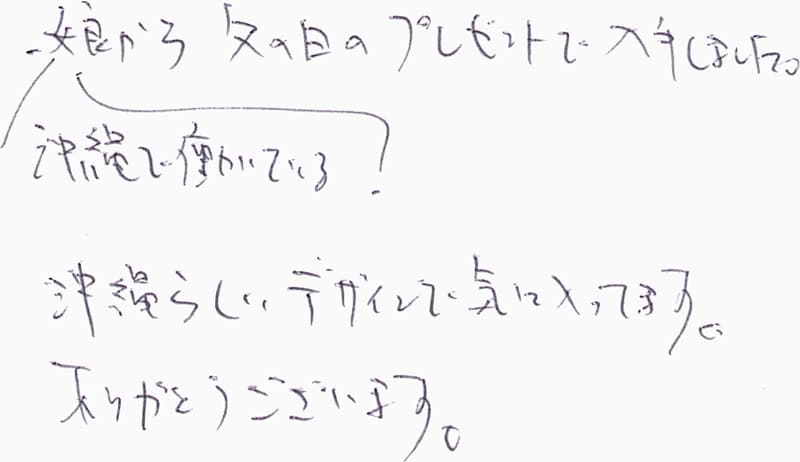 娘から 父の日の プレゼントで 入手しました。
沖縄で働いている
沖縄らしい デザインで 気に入ってます。
ありがとうございます。